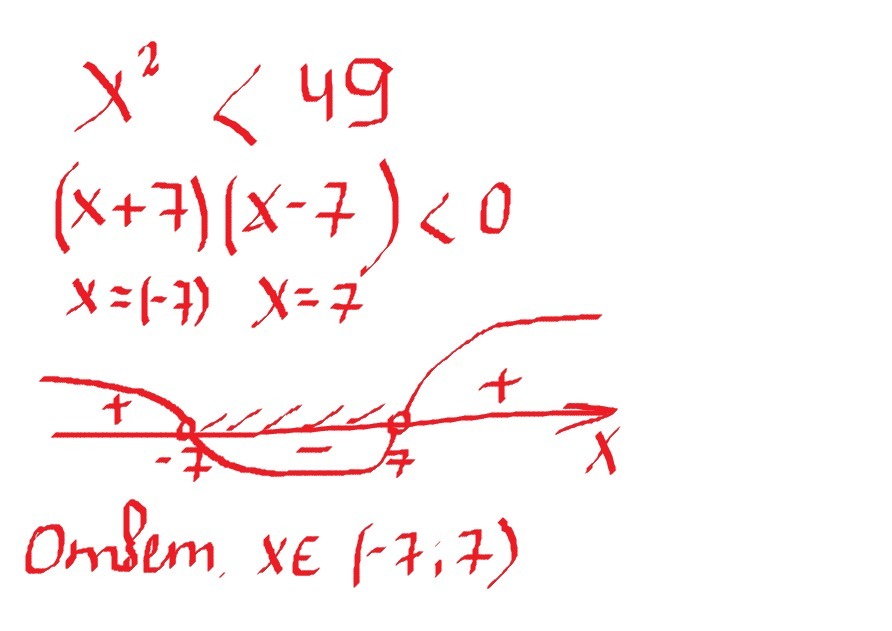 x² < 49
(x+7)(x-7) < 0
x=(-7) x=7
+ - +
-7 7 x
Ответ. x∈ (-7;7)